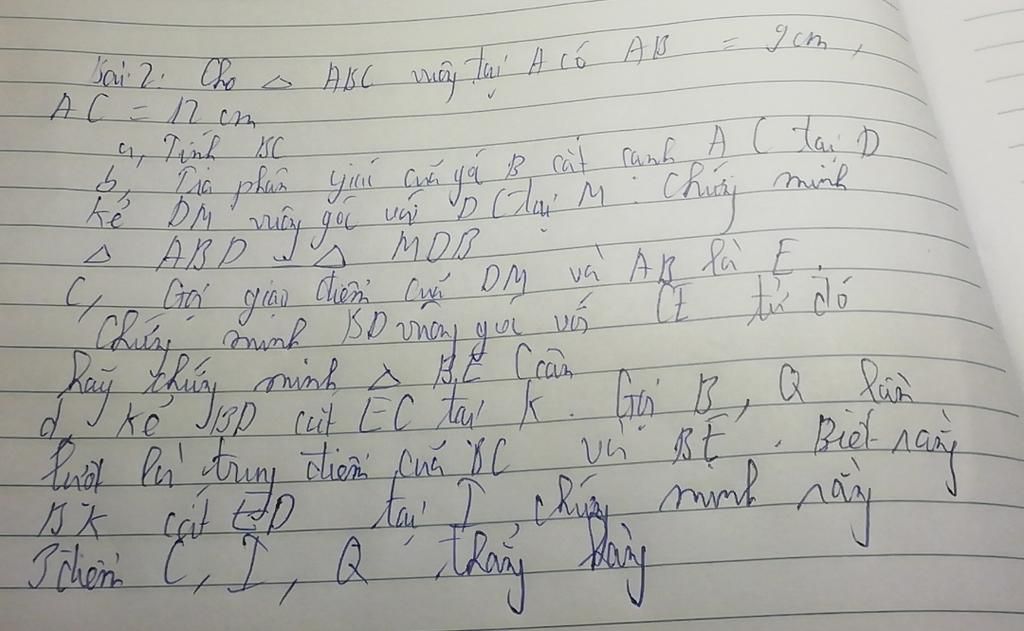 Bài 2: Cho △ ABC vuông tại A có AB = 9cm,
AC = 12 cm
a, Tính BC
b, Tia phân giác của góc B cắt cạnh AC tại D
kẻ DM vuông góc với DC tại M. Chứng minh
△ ABD = △ MDB
C, Gọi giao điểm của DM và AB là E.
Chứng minh BD vuông góc với CE từ đó
hãy chứng minh △ BEC cân
d, kẻ BD cắt EC tại K. Gọi B, Q lần
lượt là trung điểm của BC và BE. Biết rằng
BK cắt ED tại I, chứng minh rằng
3 điểm C, I, Q thẳng hàng